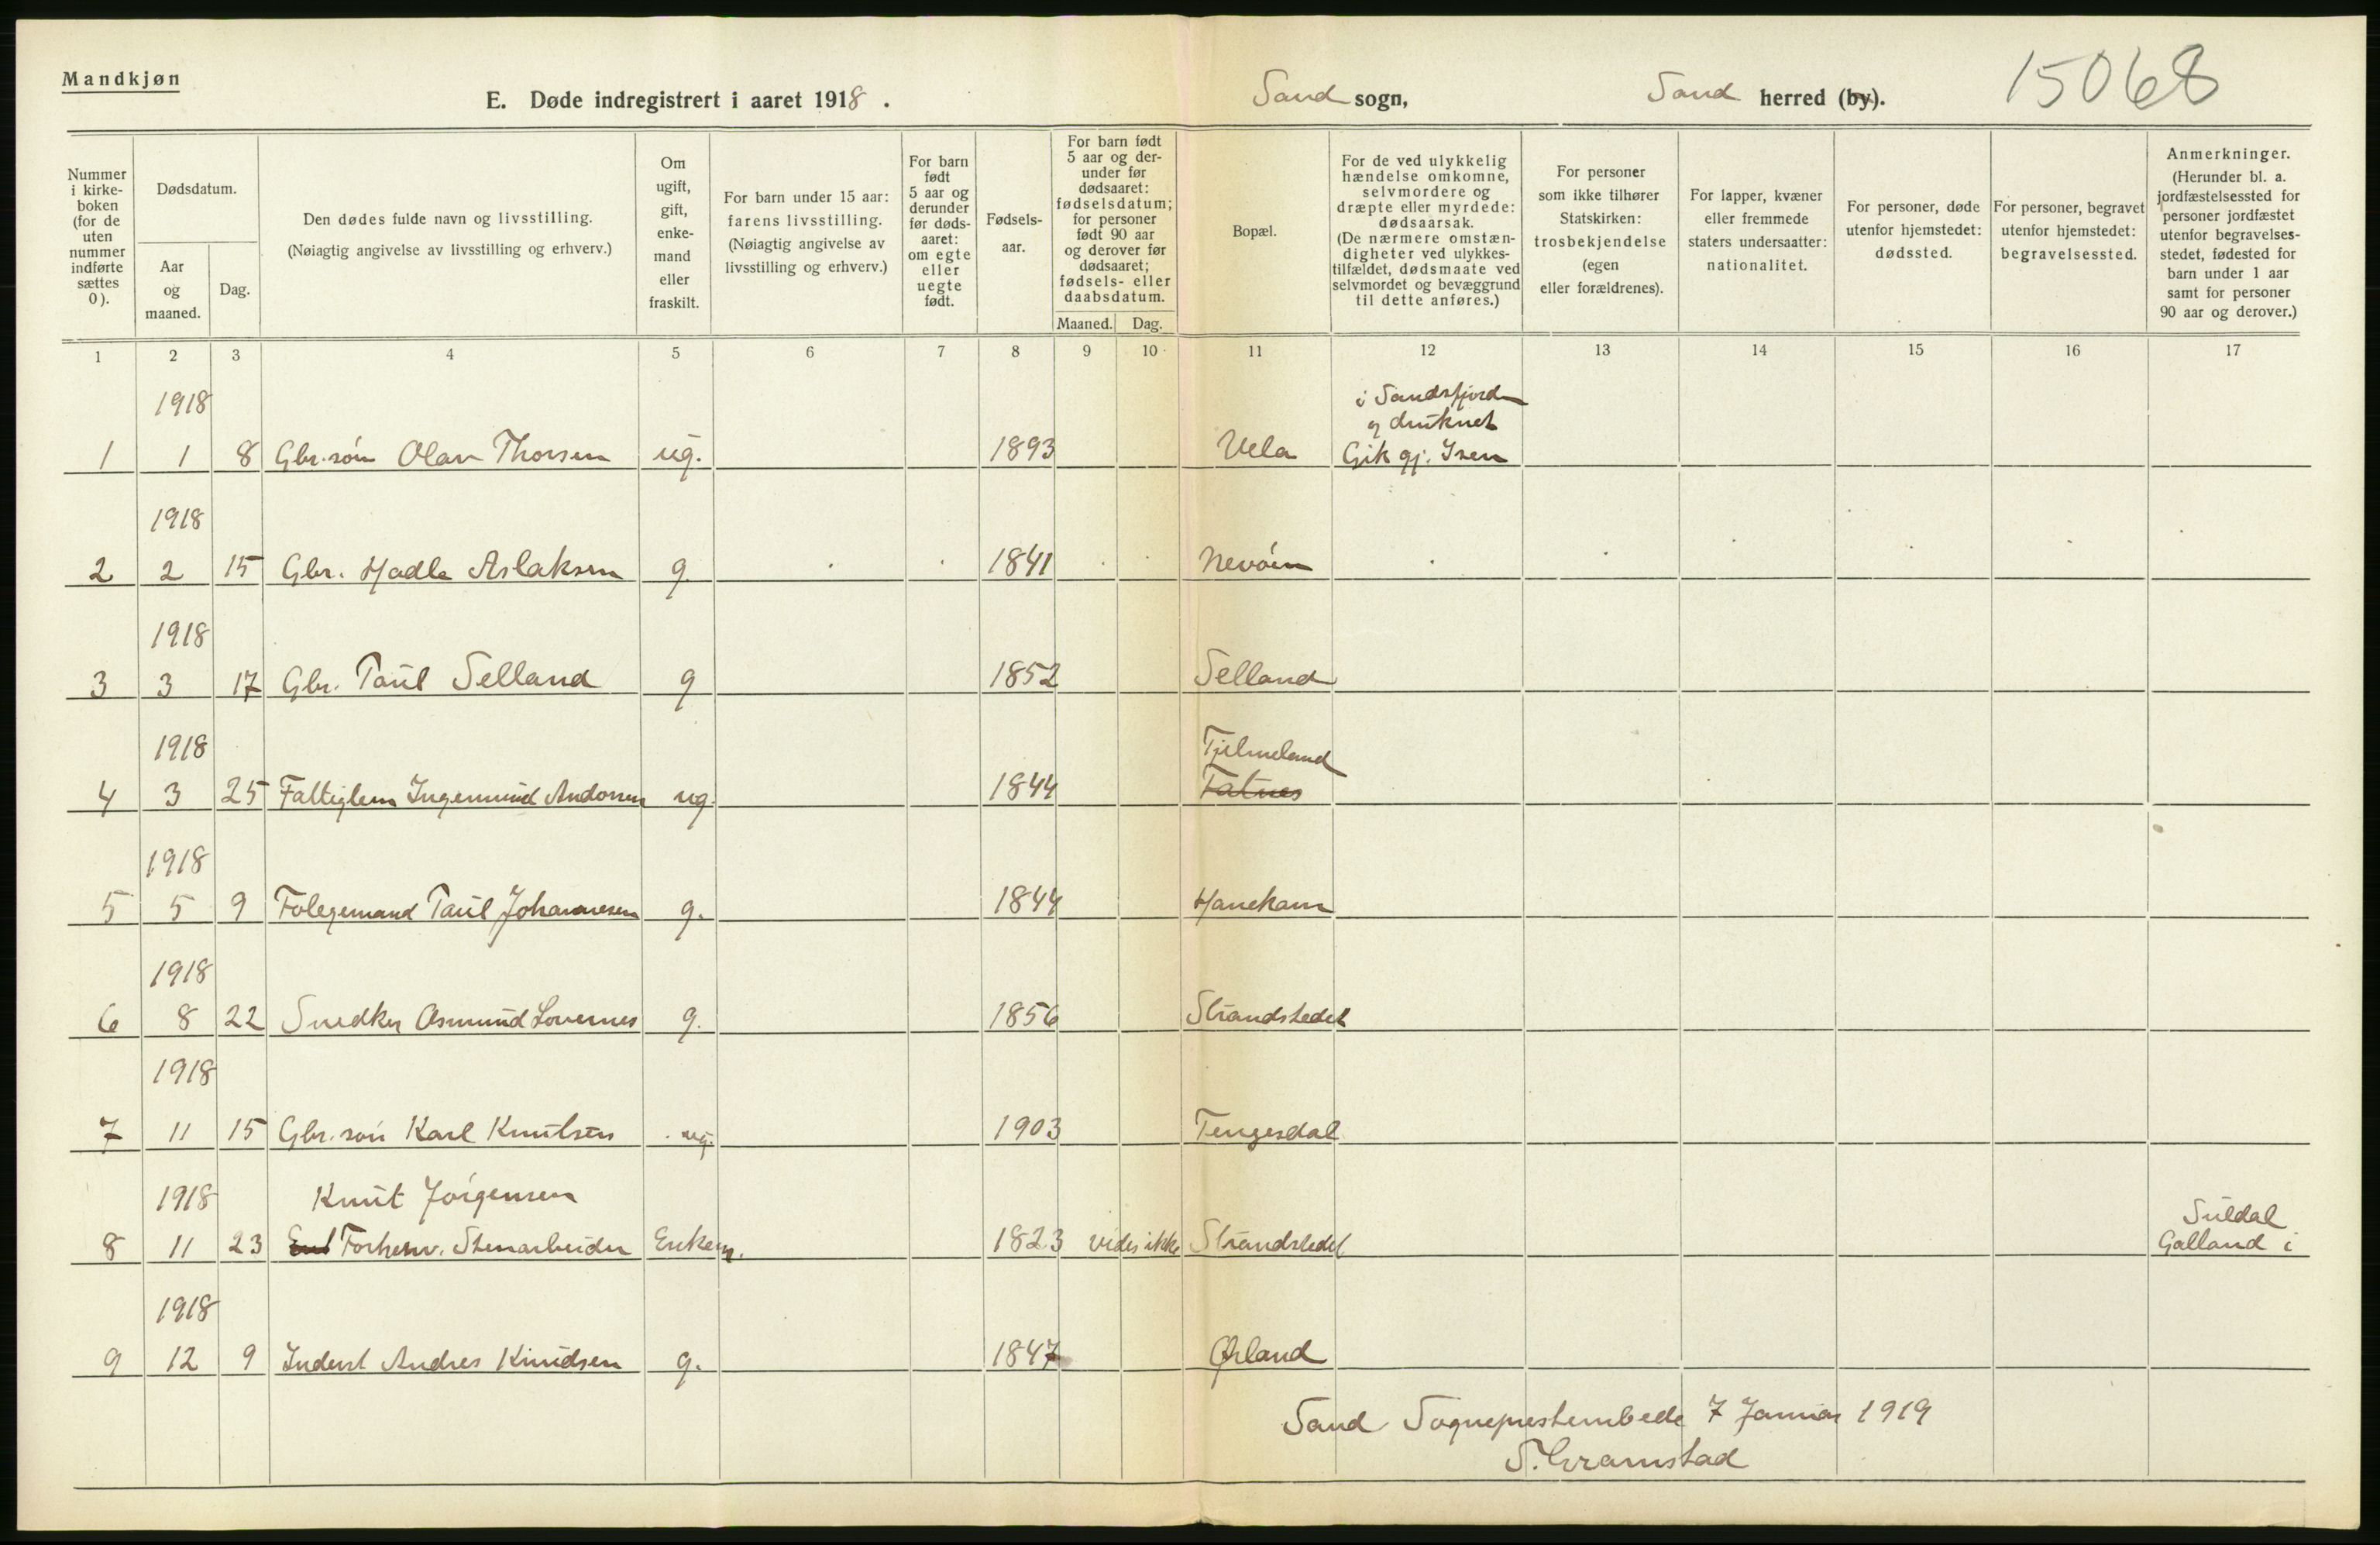 Mandkjøn
E. Døde indregistrert i aaret 1918 .
Sand sogn,
Sand herred (by).
15068
Nummer i kirke-boken (for de uten nummer indførte sættes 0).
Dødsdatum.
Aar og maaned.
Dag.
Den dødes fulde navn og livsstilling.
(Nøiagtig angivelse av livsstilling og erhverv.)
Om ugift, gift, enke-mand eller fraskilt.
For barn under 15 aar: farens livsstilling.
(Nøiagtig angivelse av livsstilling og erhverv.)
For barn født 5 aar og derunder før døds-aaret: om egte eller uegte født.
Fødsels-aar.
For barn født 5 aar og der-under før dødsaaret: fødselsdatum; for personer født 90 aar og derover før dødsaaret; fødsels- eller daabsdatum.
Maaned.
Dag.
Bopæl.
For de ved ulykkelig hændelse omkomne, selvmordere og dræpte eller myrdede: dødsaarsak.
(De nærmere omstæn-digheter ved ulykkes-tilfældet, dødsmaate ved selvmordet og bevæggrund til dette anføres.)
For personer som ikke tilhører Statskirken: trosbekjendelse (egen eller forældrenes).
For lapper, kvæner eller fremmede staters undersaatter: nationalitet.
For personer, døde utenfor hjemstedet: dødssted.
For personer, begravet utenfor hjemstedet: begravelsessted.
Anmerkninger.
(Herunder bl. a. jordfæstelsessted for personer jordfæstet utenfor begravelses-stedet, fødested for barn under 1 aar samt for personer 90 aar og derover.)
1 2 3 4 5 6 7 8 9 10 11 12 13 14 15 16 17
1918 i Sandsfjorden
og druknet
1 1 8 Gbr. søn Olav Thorsen ug. 1893 Vela Gik gj. Isen
1918
2 2 15 Gbr. Hadle Aslaksen g. 1841 Nevøien
1918
3 3 17 Gbr. Paul Selland g 1852 Selland
1918 Tjelmeland
4 3 25 Fattiglem Ingemund Andorsen ug. 1844 Fatnes
1918
5 5 9 Folgemand Paul Johannesen g. 1844 Hanekam
1918
6 8 22 Snedker Osmund Lovernes g. 1856 Strandstedet
1918
7 11 15 Gbr. søn Karl Knutsen ug. 1903 Tengesdal
1918 Knut Jørgensen Suldal
8 11 23 Forhenv. Stenarbeider Enkem. 1823 vides ikke Strandstedet Galland i
1918
9 12 9 Inderst Andres Knudsen g. 1847 Ørland
Sand Sogneprestembede 7 Januar 1919
S. Gramstad